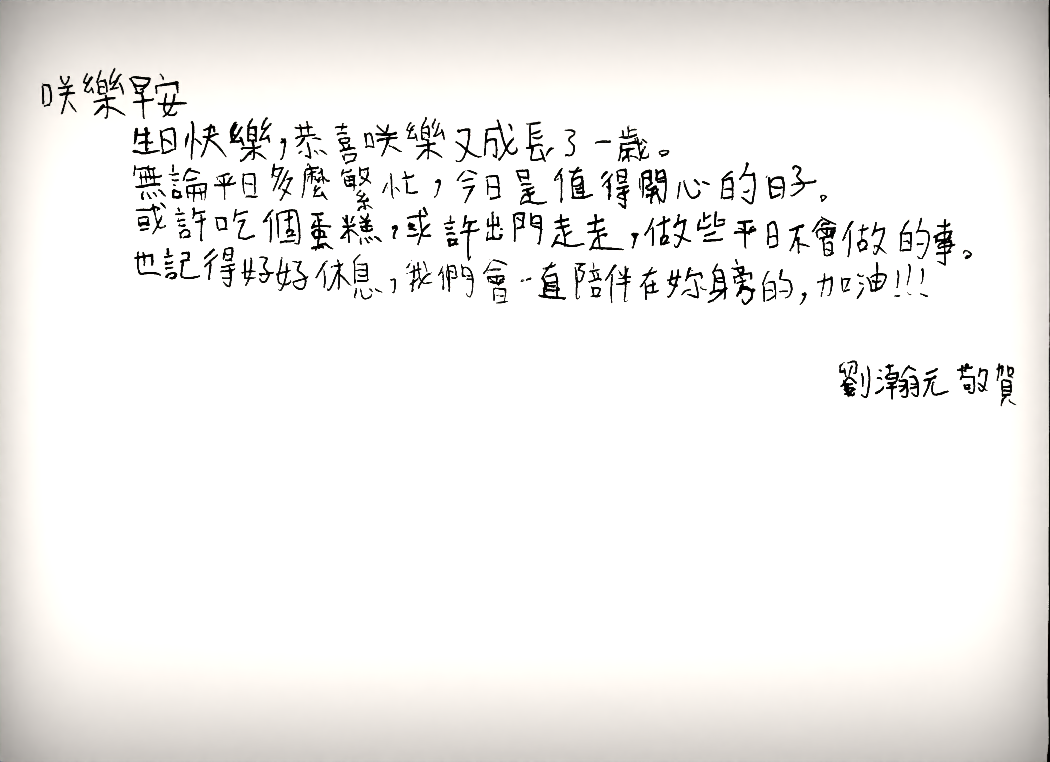 咲樂早安
生日快樂,恭喜咲樂又成長了一歲。
無論平日多麼繁忙,今日是值得開心的日子。
或許吃個蛋糕,或許出門走走,做些平日不會做的事。
也記得好好休息,我們會一直陪伴在妳身旁的,加油!!!
劉瀚元 敬賀